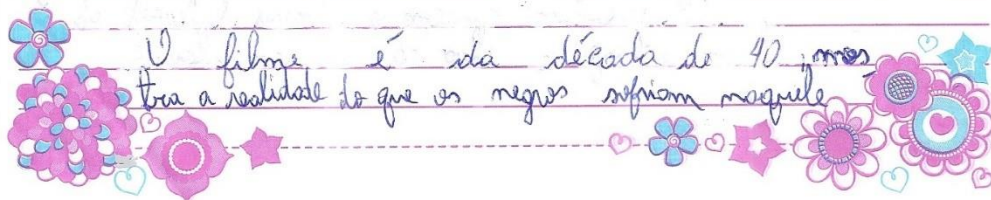 O filme é da década de 40, mos
tra a realidade do que os negros sofriam naquele